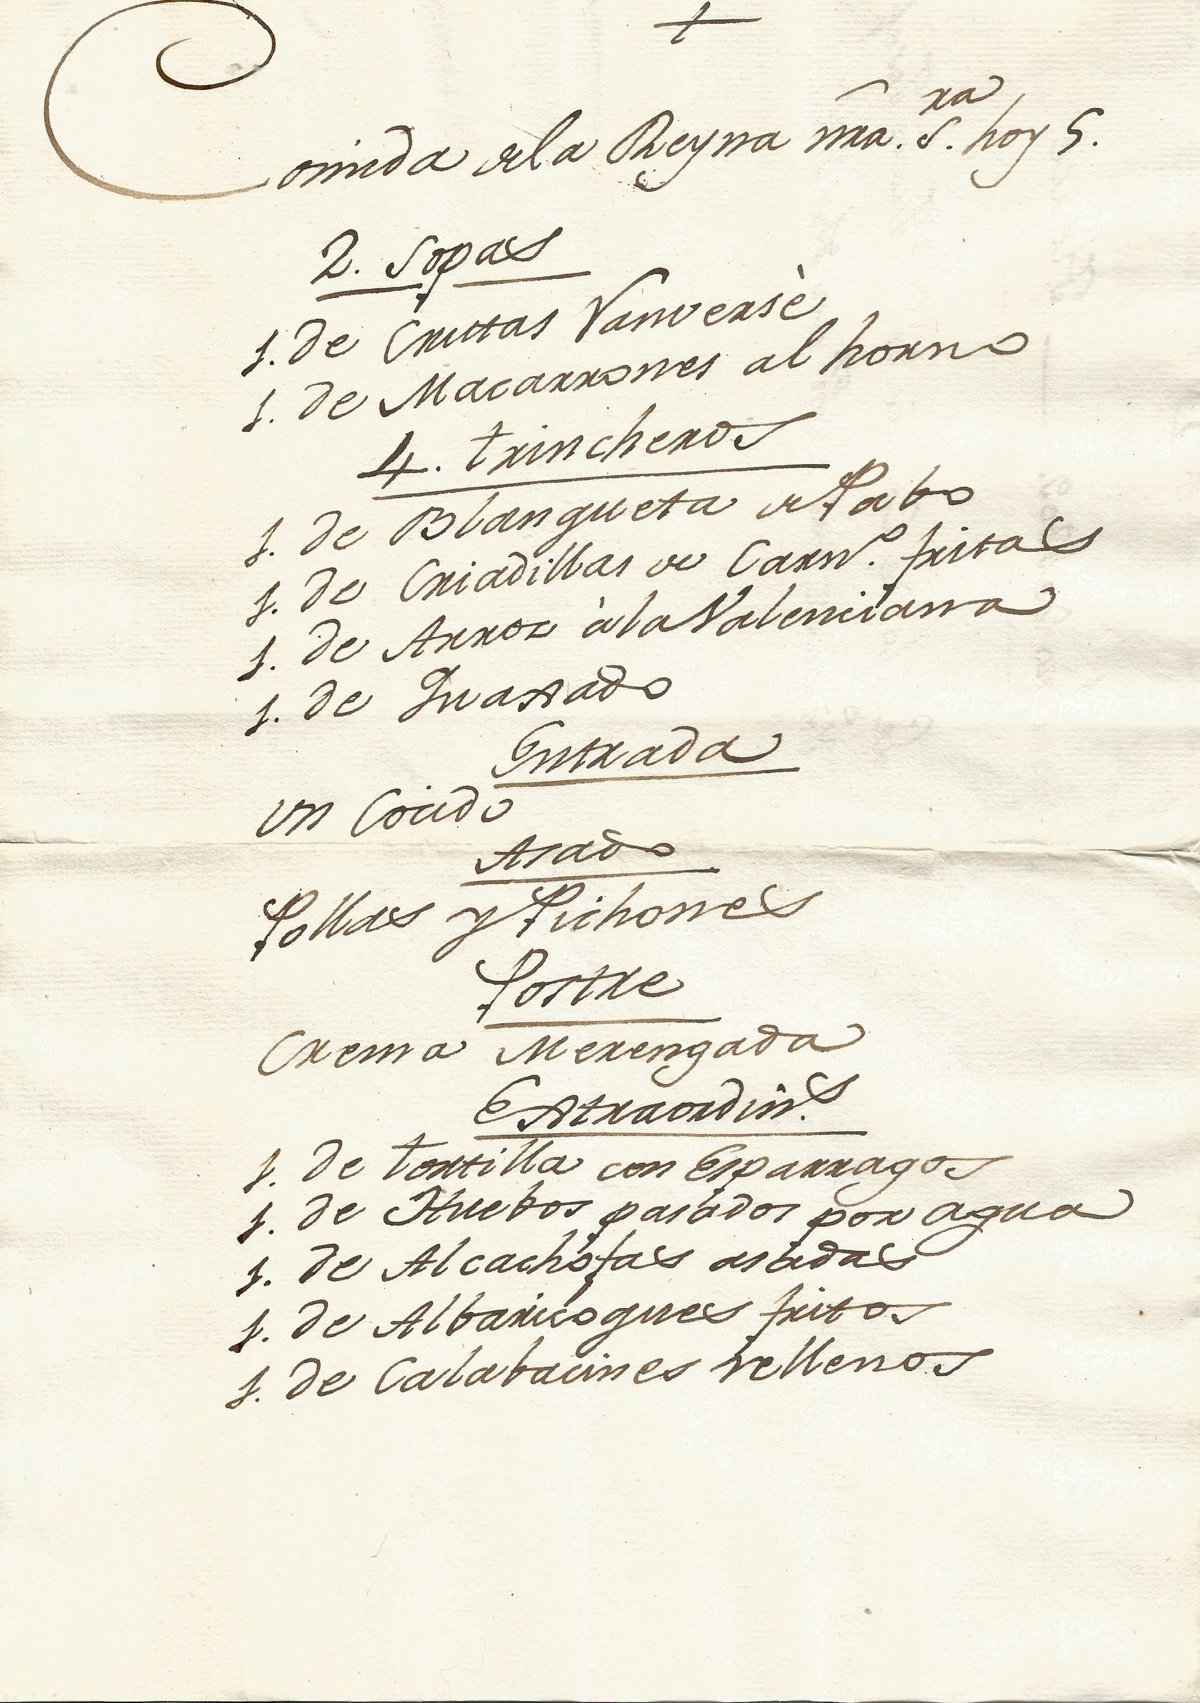 +
Comida de la Reyna nra. S.ra hoy 5.
2. Sopas
1. de Crutas Vanversè
1. de Macarrones al horno
4. trincheros
1. de Blangueta de Pabo
1. de Criadillas de Carn.o fritas
1. de Arroz à la Valenciana
1. de Guasado
Entrada
Un Cocido
Asado
Pollas y Pichones
Postre
Crema Merengada
Extraordin.s
1. de tortilla con Esparragos
1. de Huebos pasados por agua
1. de Alcachofas asadas
1. de Albaricoques fritos
1. de Calabacines rellenos